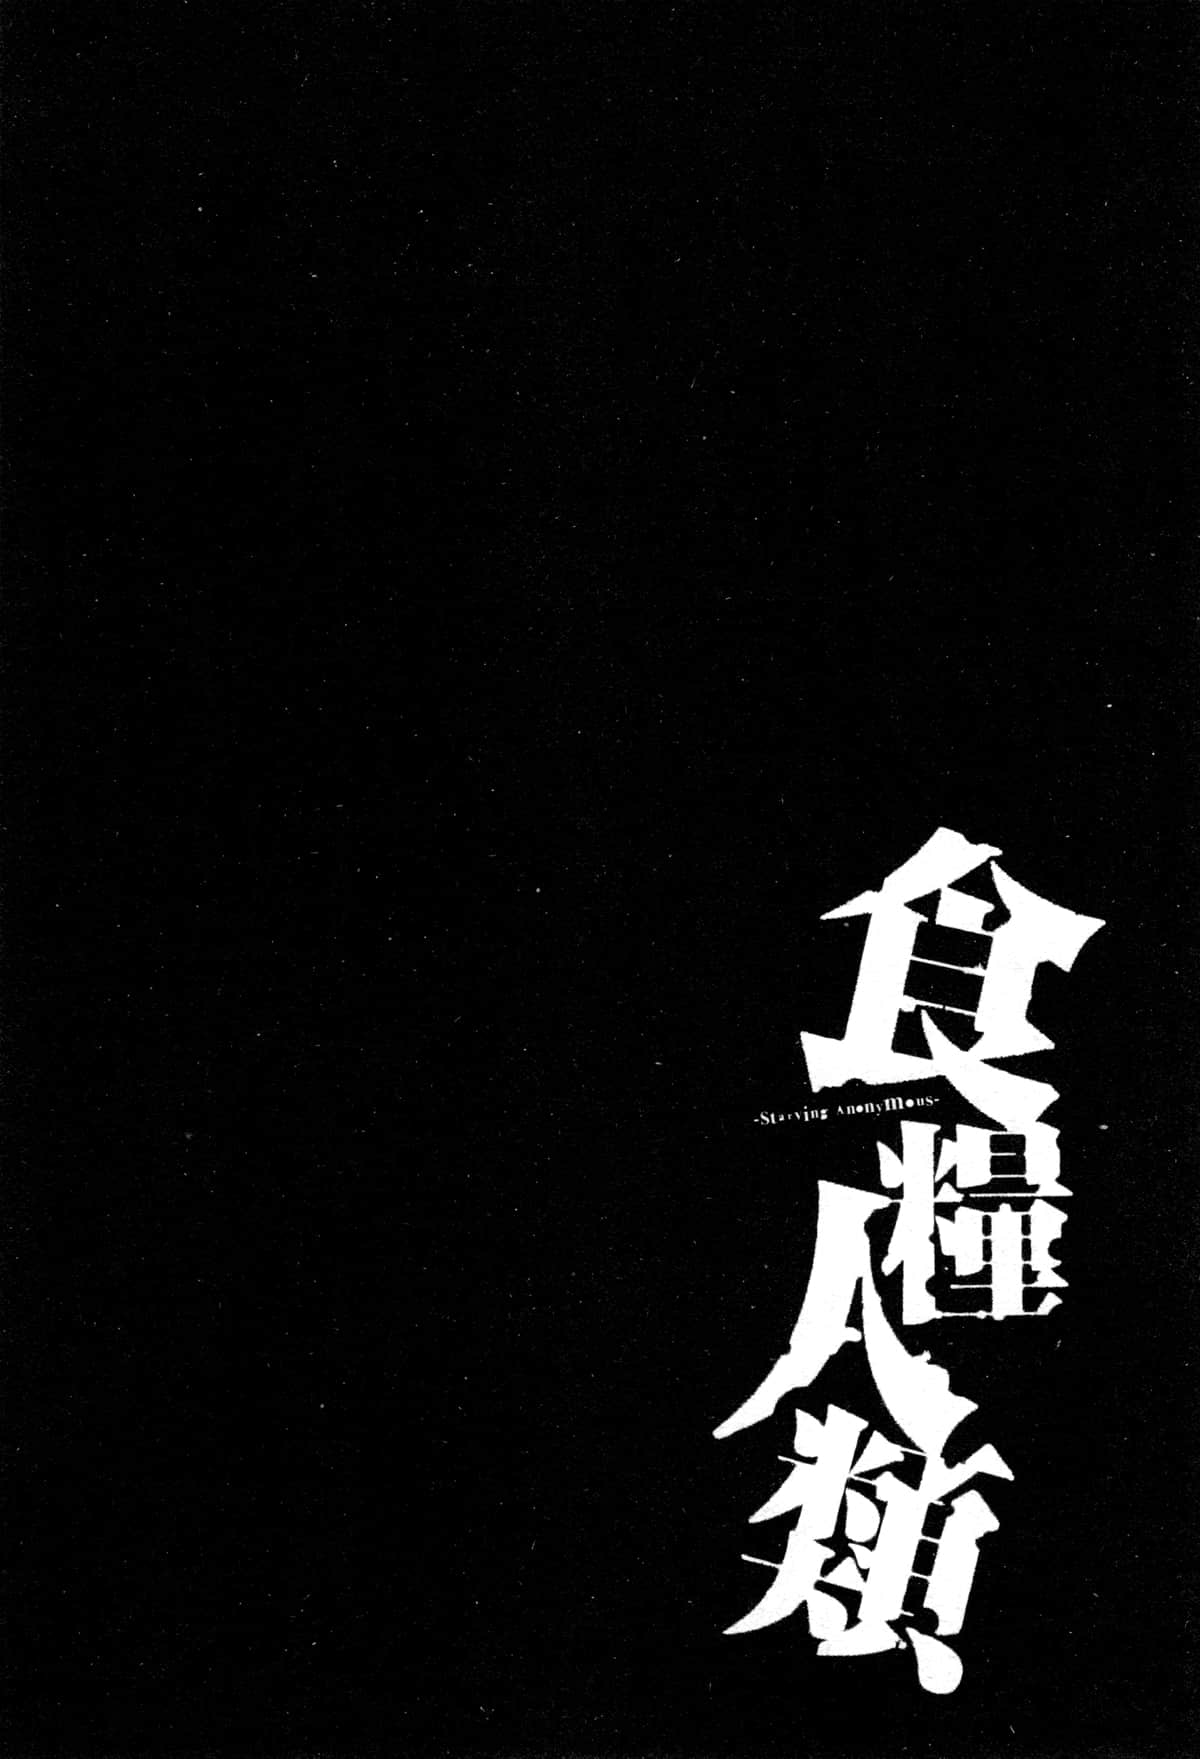 食糧人類
-Starving Anonymous-